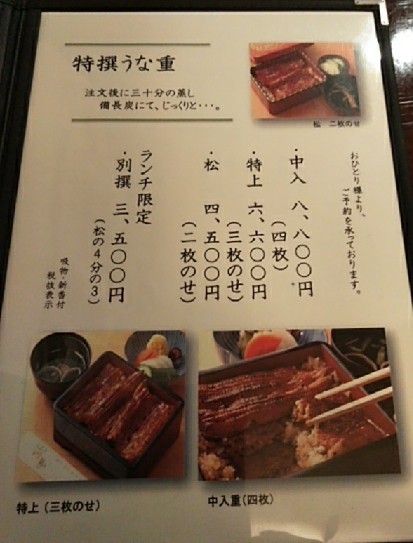 特撰うな重
注文後に三十分の蒸し
備長炭にて、じっくりと・・・。
松　二枚のせ
おひとり様より、
ご予約を承っております。
・中入　八、八〇〇円
（四枚）
・特上　六、六〇〇円
（三枚のせ）
・松　四、五〇〇円
（二枚のせ）
ランチ限定
・別撰　三、五〇〇円
（松の４分の３）
吸物・新香付
税抜表示
特上（三枚のせ）
中入重（四枚）